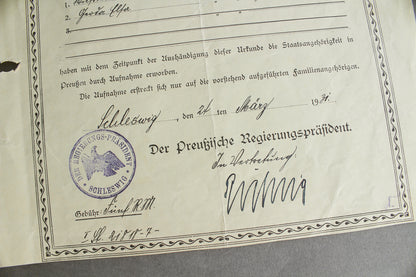 2. Gerda Elsa
haben mit dem Zeitpunkt der Aushändigung dieser Urkunde die Staatsangehörigkeit in
Preußen durch Aufnahme erworben.
Die Aufnahme erstreckt sich nur auf die vorstehend aufgeführten Familienangehörigen.
Schleswig, den 24 ten März 1931.
Der Preußische Regierungspräsident.
In Vertretung.
DER REGIERUNGS-PRÄSIDENT
* SCHLESWIG *
Gebühr: Fünf RM